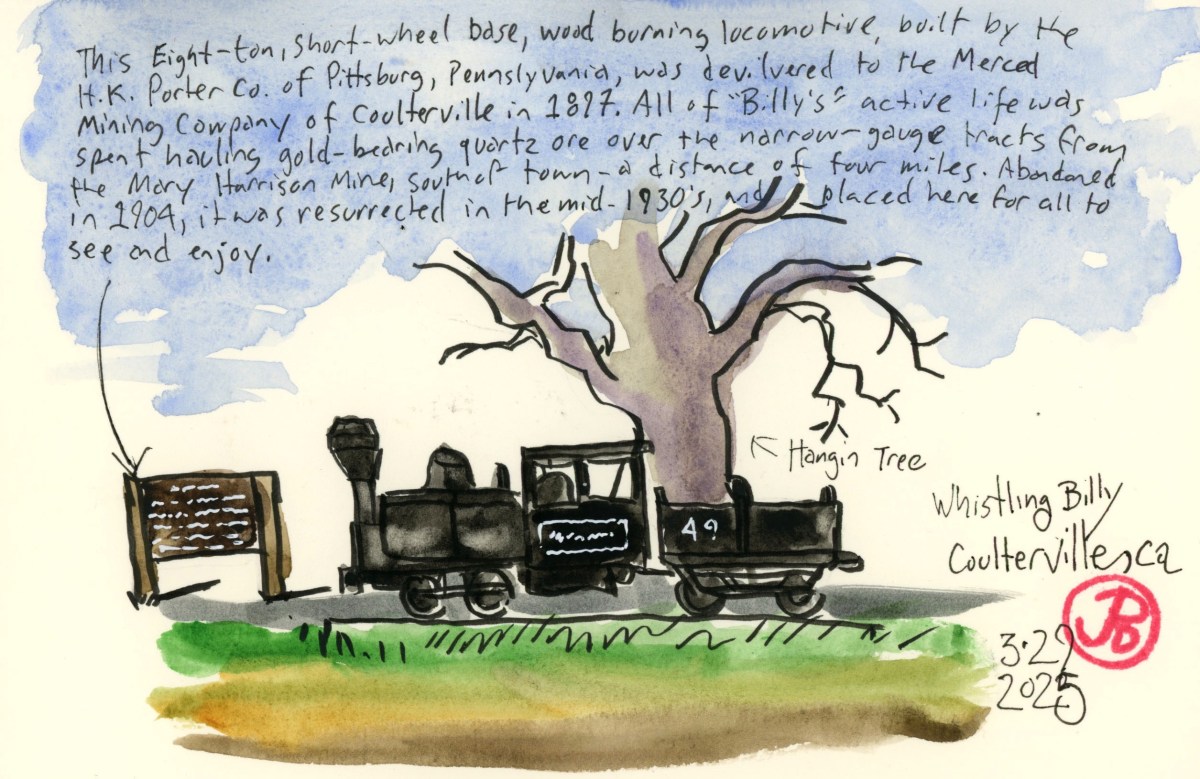 This Eight-ton, short-wheel base, wood burning locomotive, built by the
H.K. Porter Co. of Pittsburg, Pennslyvania, was devilvered to the Merced
Mining Company of Coulterville in 1897. All of "Billy's" active life was
spent hauling gold-bearing quartz ore over the narrow-gauge tracts from
the Mary Harrison Mine, south of town - a distance of four miles. Abandoned
in 1904, it was resurrected in the mid-1930's, and placed here for all to
see and enjoy.
Hangin Tree
49
Whistling Billy
Coulterville, Ca
JPD
3.29
2025